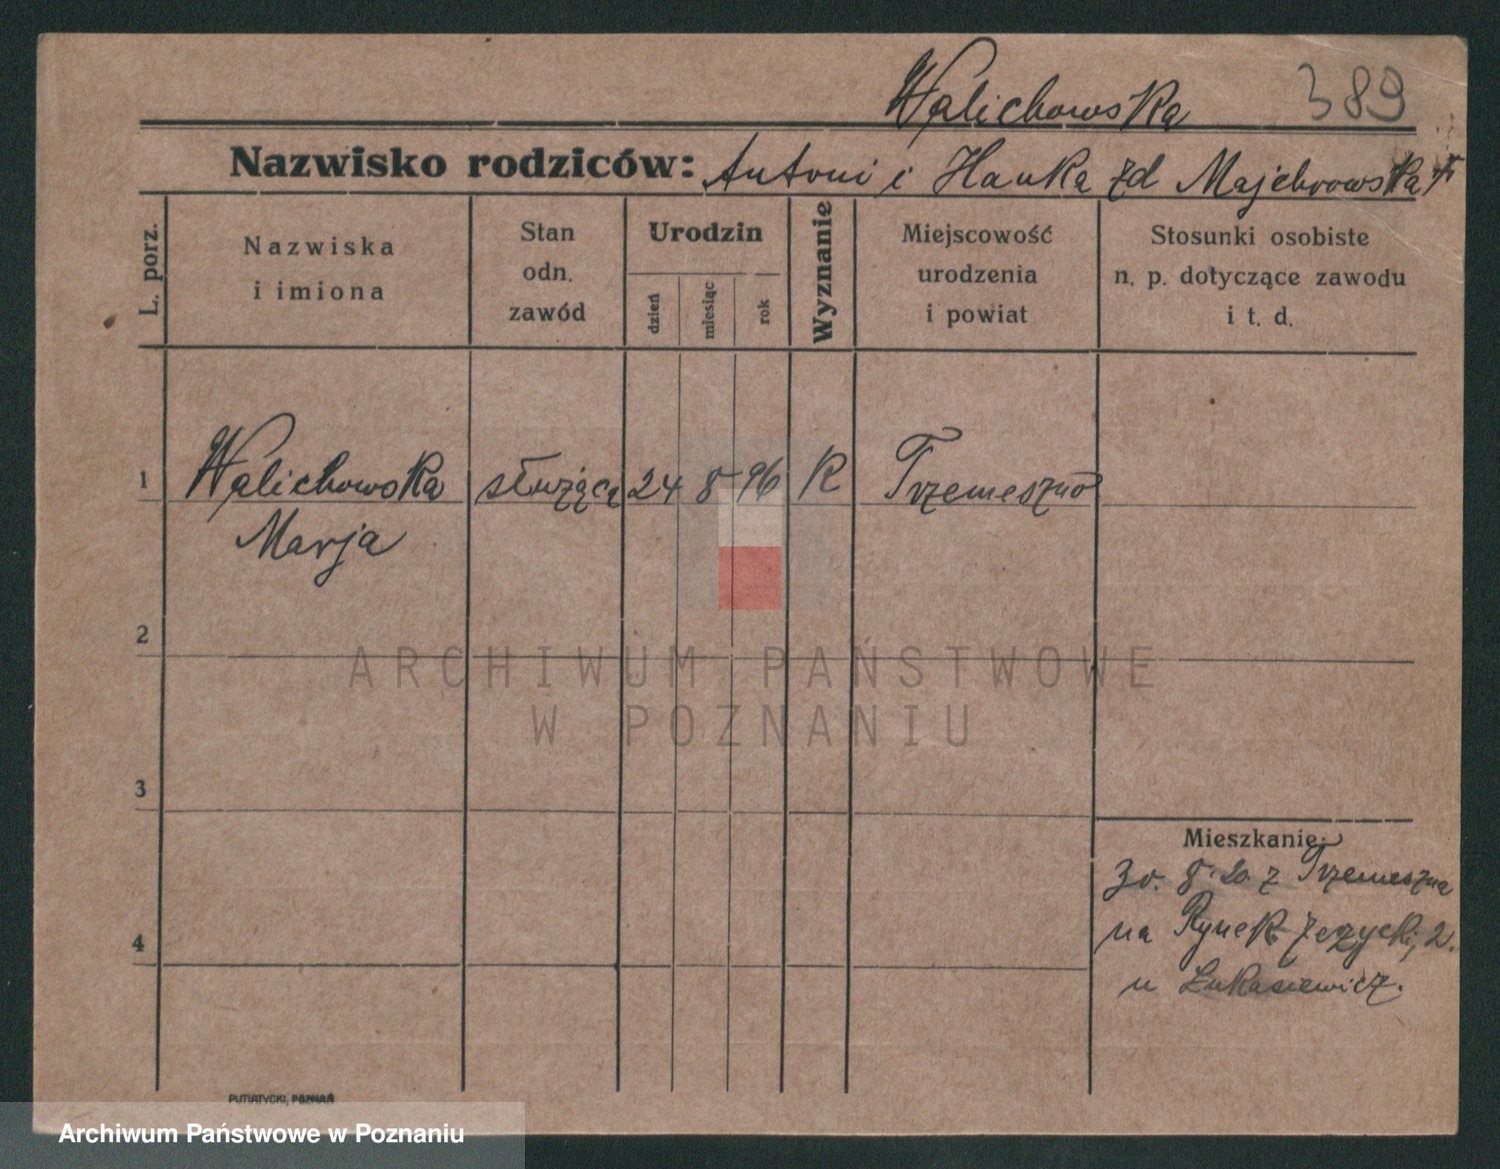 Walichowska 389
Nazwisko rodziców: Antoni i Hanka zd Majchrowska
L. porz.
Nazwiska
i imiona
Stan
odn.
zawód
Urodzin
dzień
miesiąc
rok
Wyznanie
Miejscowość
urodzenia
i powiat
Stosunki osobiste
n. p. dotyczące zawodu
i t. d.
1 Walichowska służąca 24 8 96 R Trzemeszno
Marja
2
3
4
Mieszkanie:
30. 8. 20. z Trzemeszna
na Rynek Jeżycki, 2.
u Łukasiewicz.
ARCHIWUM PAŃSTWOWE
W POZNANIU
PUTIATYCKI, POZNAŃ
Archiwum Państwowe w Poznaniu